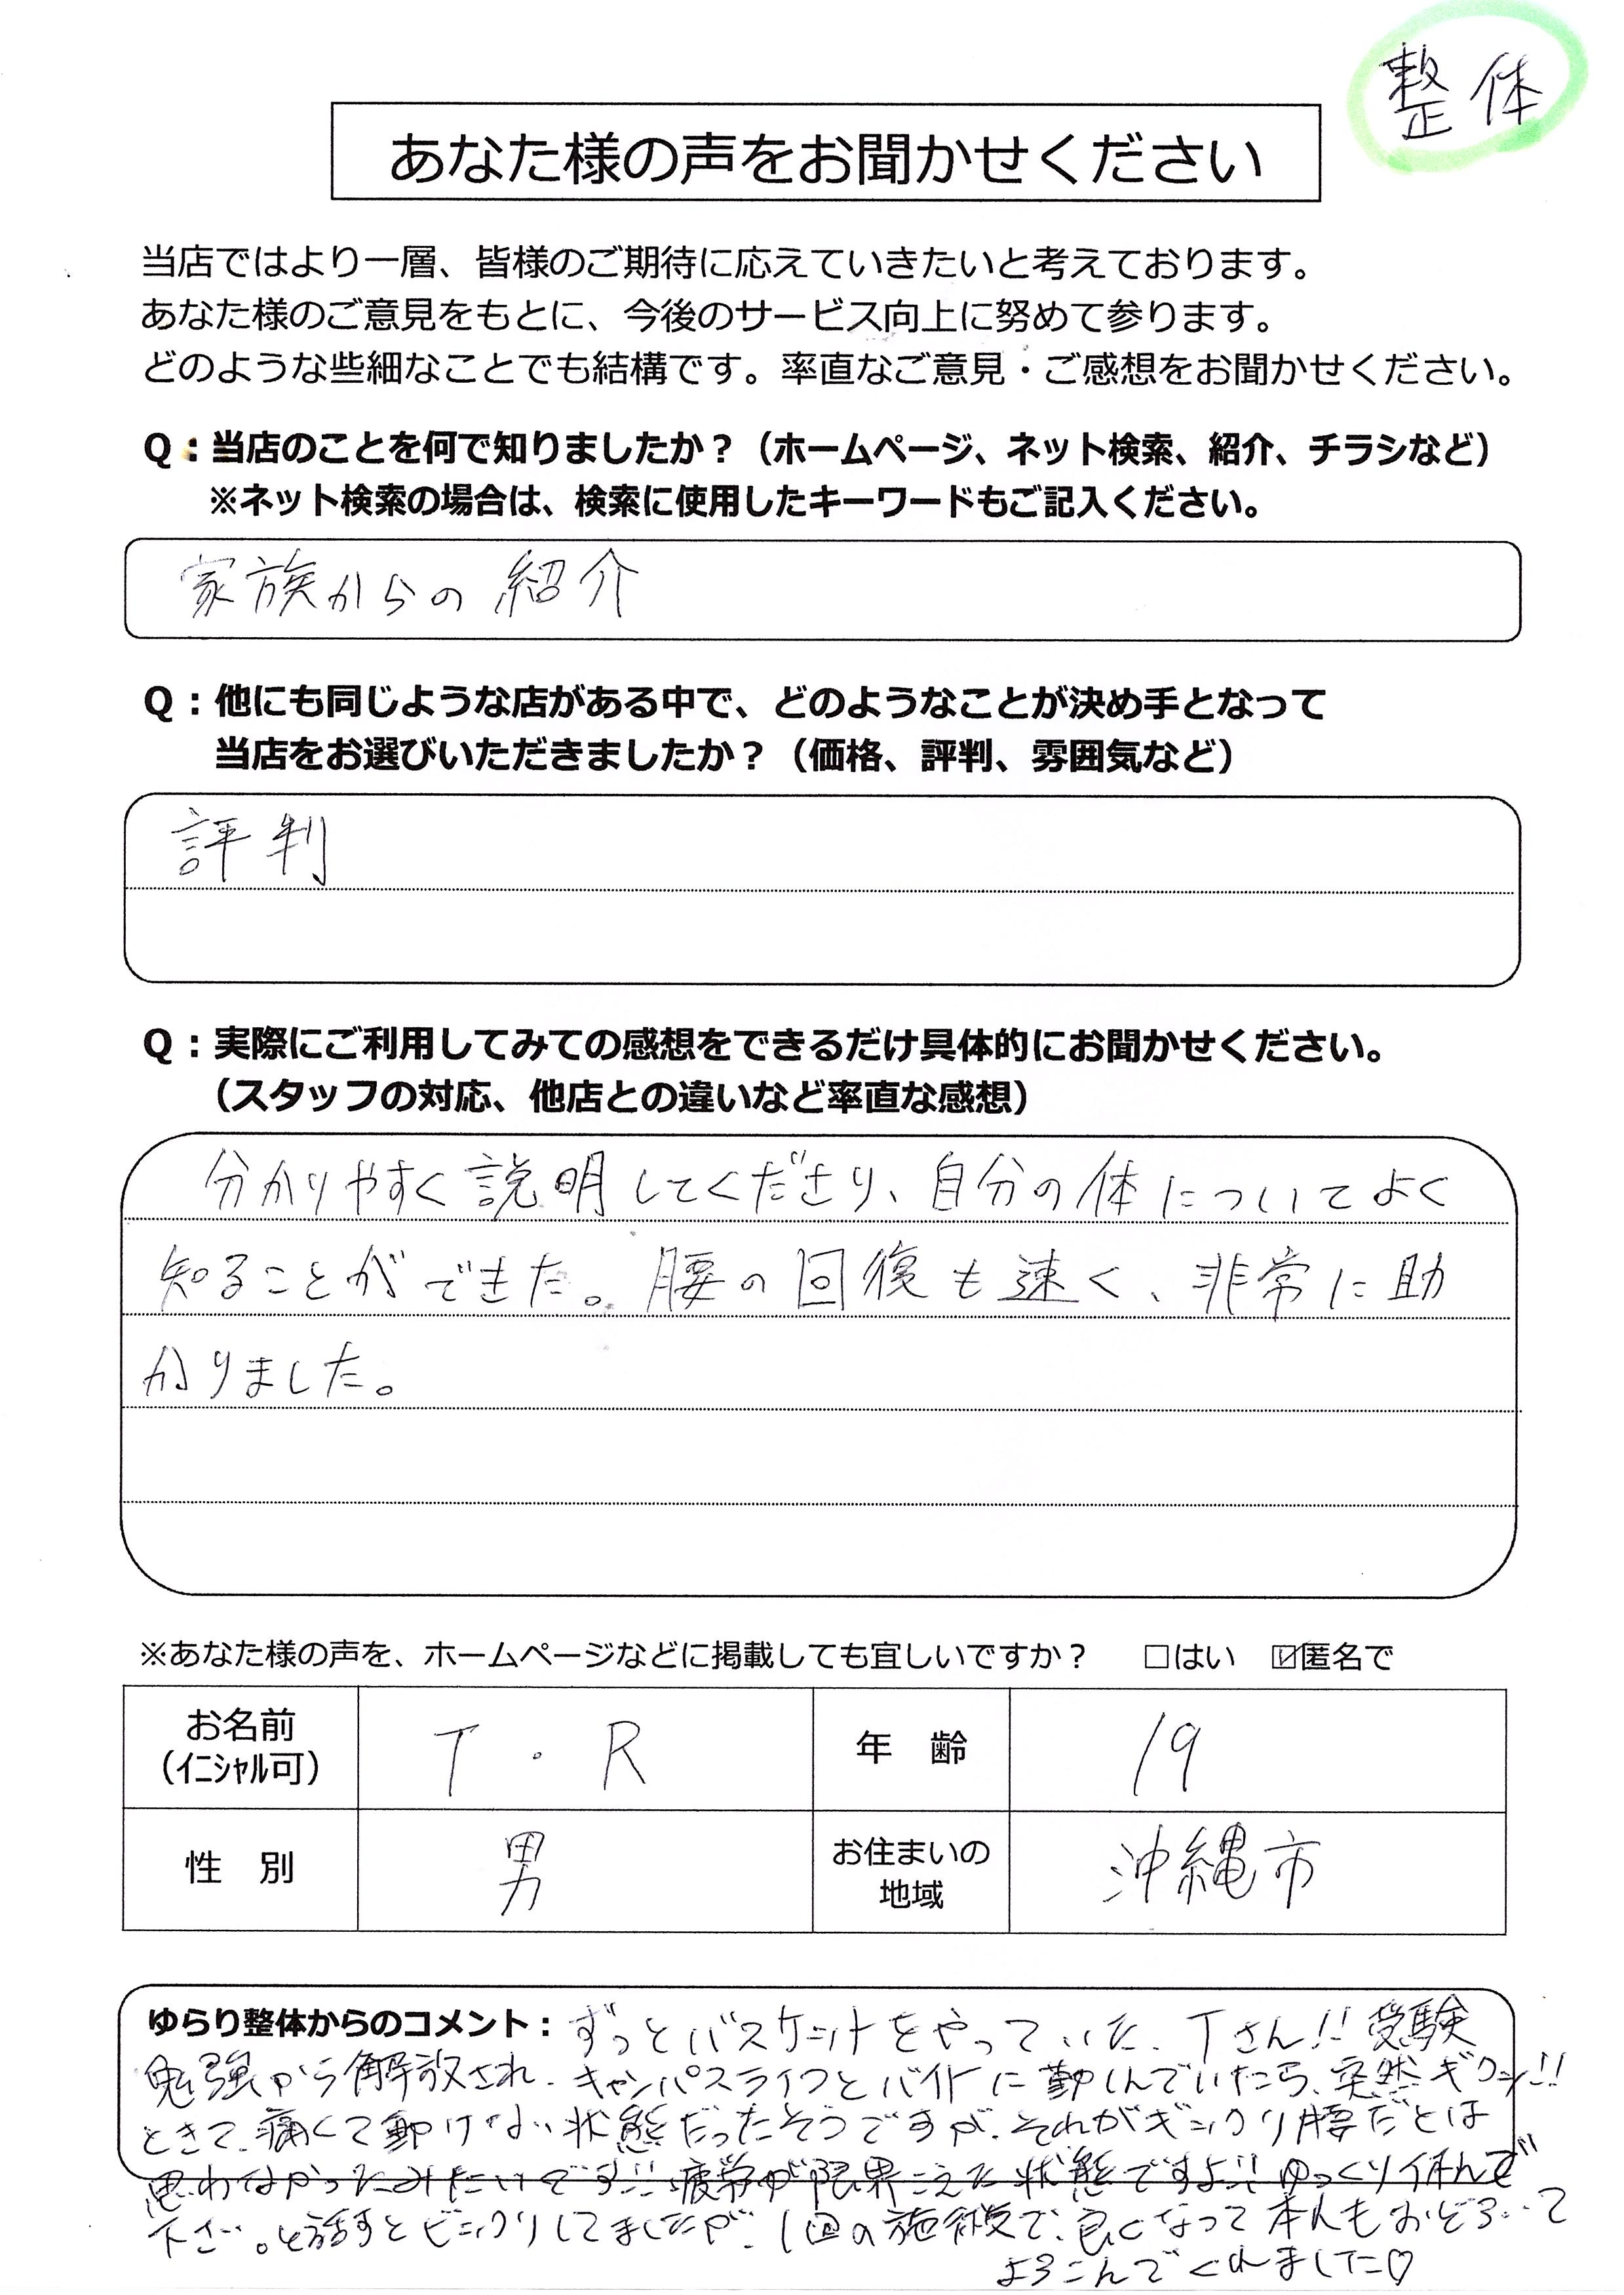 整体
あなた様の声をお聞かせください
当店ではより一層、皆様のご期待に応えていきたいと考えております。
あなた様のご意見をもとに、今後のサービス向上に努めて参ります。
どのような些細なことでも結構です。率直なご意見・ご感想をお聞かせください。
Q：当店のことを何で知りましたか？（ホームページ、ネット検索、紹介、チラシなど）
※ネット検索の場合は、検索に使用したキーワードもご記入ください。
家族からの紹介
Q：他にも同じような店がある中で、どのようなことが決め手となって
当店をお選びいただきましたか？（価格、評判、雰囲気など）
評判
Q：実際にご利用してみての感想をできるだけ具体的にお聞かせください。
（スタッフの対応、他店との違いなど率直な感想）
分かりやすく説明してくださり、自分の体についてよく
知ることができた。腰の回復も速く、非常に助
かりました。
※あなた様の声を、ホームページなどに掲載しても宜しいですか？ □はい ☑匿名で
お名前 T・R 年 齢 19
（ｲﾆｼｬﾙ可）
性 別 男 お住まいの 沖縄市
地域
ゆらり整体からのコメント：ずっとバスケットをやっていた、Tさん!! 受験
勉強から解放され、キャンパスライフとバイトに勤しんでいたら、突然ギクッ!!
ときて、痛くて動けない状態だったそうですが、それがギックリ腰だとは
思わなかったみたいです!! 疲労が限界こえた状態ですよ!! ゆっくり休んで
下さい。と話すとビックリしてましたが、1回の施術で、良くなって本人もおどろいて
よろこんでくれました♡